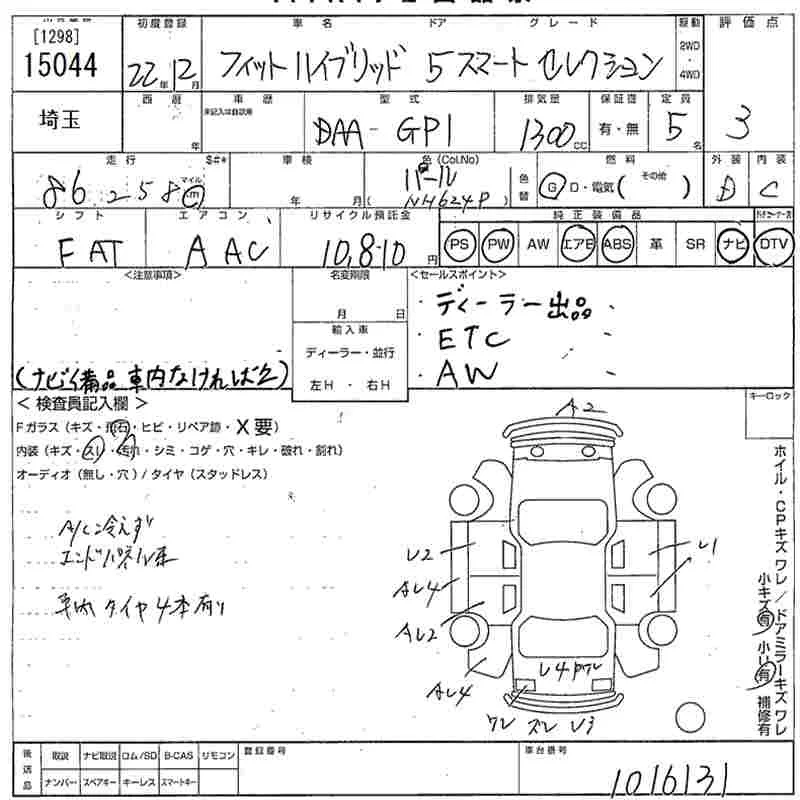 [1298]
15044
埼玉
初度登録
22年12月
西暦
年
車名 ドア グレード
フィットハイブリッド 5 スマートセレクション
駆動
2WD
・
4WD
評価点
3
車歴
未記入は自家用
型式
DAA-GP1
排気量
1300cc
保証書
有・無
定員
5名
走行
86258 マイル km
$#*
車検
年 月
色(Col.No)
パール
(NH624P)
色替
燃料
G D・電気( その他 )
外装
D
内装
C
シフト
FAT
エアコン
AAC
リサイクル預託金
10,810円
純正装備品
PS PW AW エアB ABS 革 SR ナビ DTV
<注意事項>
(ナビ備品車内なければ欠)
名変期限
月 日
輸入車
ディーラー・並行
左H ・ 右H
<セールスポイント>
・ディーラー出品
・ETC
・AW
キーロック
< 検査員記入欄 >
Fガラス(キズ・飛石・ヒビ・リペア跡・X要)
内装(キズ・スレ・汚れ・シミ・コゲ・穴・キレ・破れ・割れ)
オーディオ(無し・穴)/タイヤ(スタッドレス)
A/C冷えず
エンドパネル
車内タイヤ4本有り
A2
レ2
AL4
AL2
AL4
レ1
レ4 ワレ
ワレ ズレ レ3
ホイル・CPキズワレ/ドアミラーキズワレ
小キズ有 小凹有 補修有
後送品
取説 ナビ取説 ロム/SD B-CAS リモコン
ナンバー スペアキー キーレス スマートキー
登録番号
車台番号
1016131